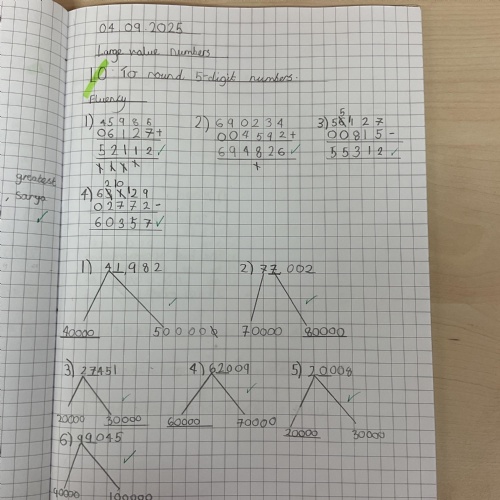 04.09.2025
Large value numbers
LO: To round 5-digit numbers.
Fluency
greatest
, Sarya
1) 45985
06127+
52112
2) 690234
004592+
694826
3) 56127
00815-
55312
4) 63129
02772-
60357
1) 41,982
40000 50000
2) 77,002
70000 80000
3) 27451
20000 30000
4) 62009
60000 70000
5) 20008
20000 30000
6) 99045
100000